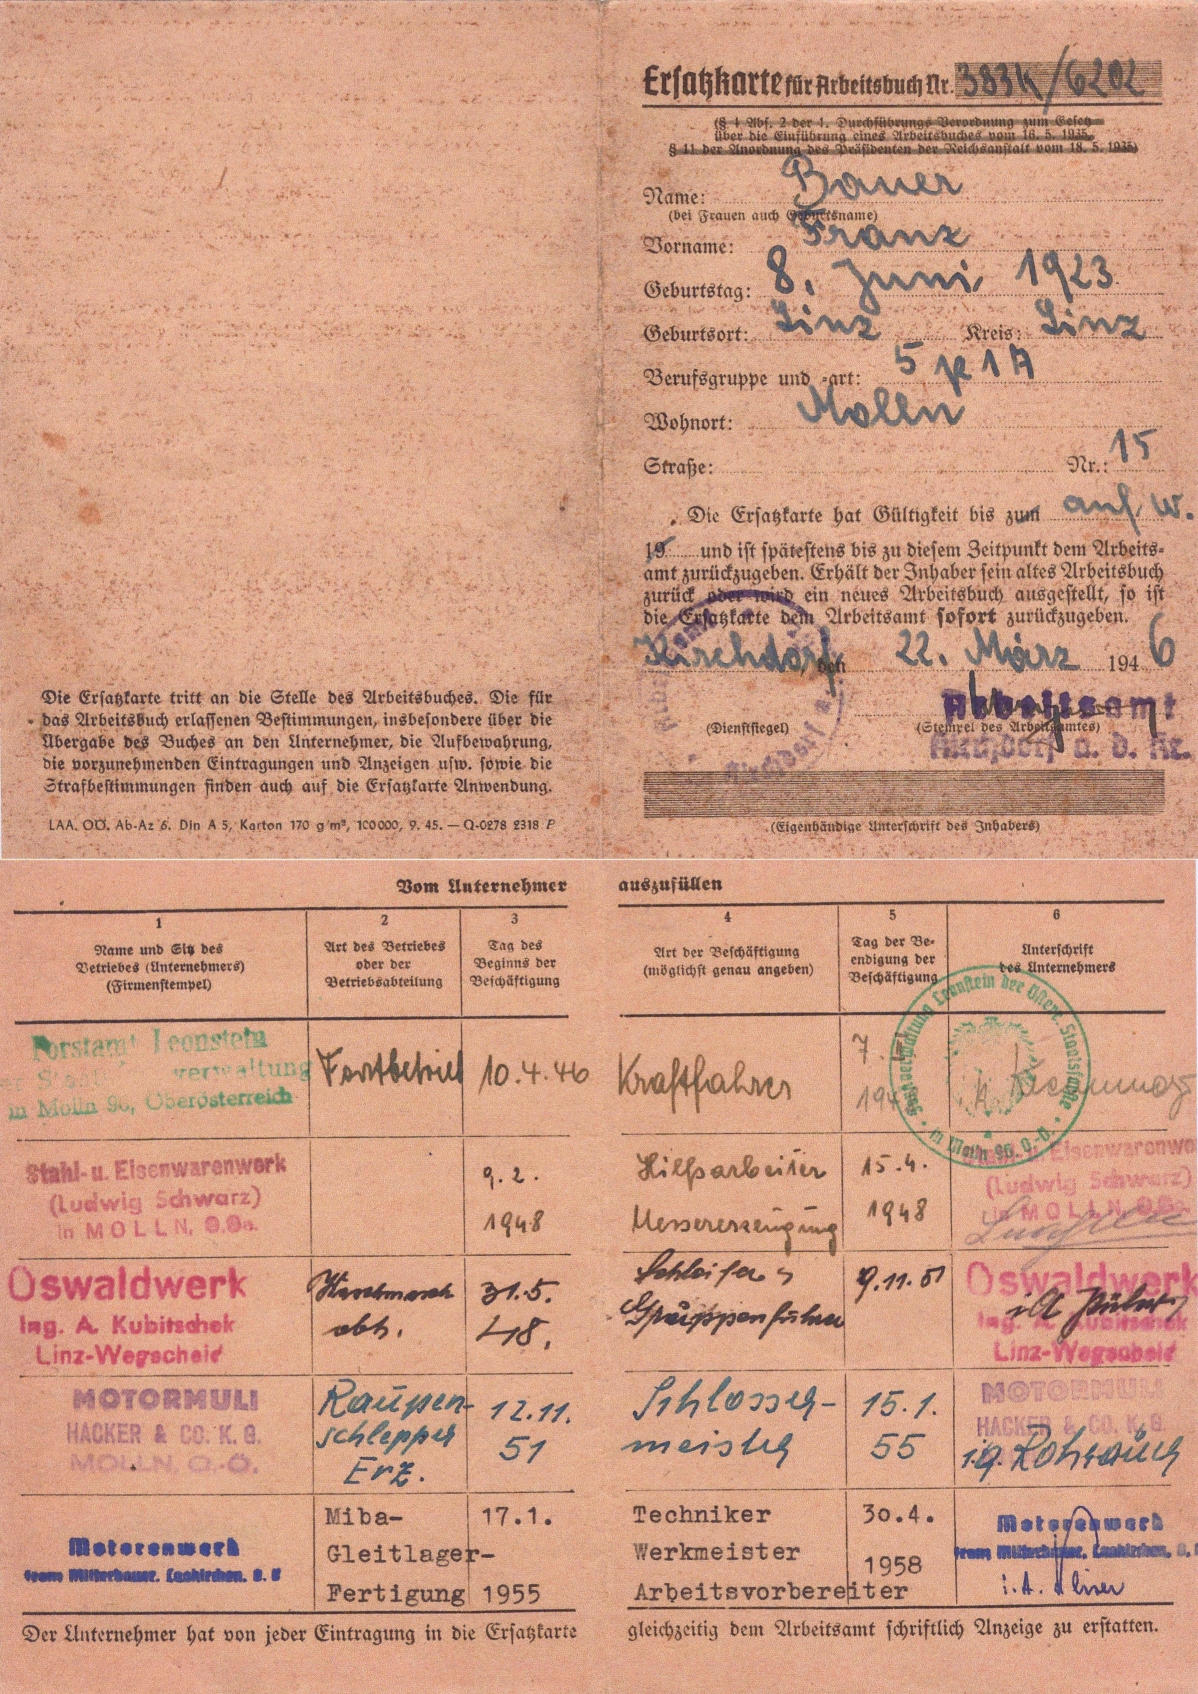 Ersatzkarte für Arbeitsbuch Nr. 383k/6202
(§ 4 Abs. 2 der 1. Durchführungs-Verordnung zum Gesetz
über die Einführung eines Arbeitsbuches vom 16. 5. 1935,
§ 11 der Anordnung des Präsidenten der Reichsanstalt vom 18. 5. 1935)
Name: Bauer
(bei Frauen auch Geburtsname)
Vorname: Franz
Geburtstag: 8. Juni 1923
Geburtsort: Linz Kreis: Linz
Berufsgruppe und -art: 5 k 1 A
Wohnort: Molln
Straße: Nr.: 15
Die Ersatzkarte hat Gültigkeit bis zum auf w.
19 und ist spätestens bis zu diesem Zeitpunkt dem Arbeits-
amt zurückzugeben. Erhält der Inhaber sein altes Arbeitsbuch
zurück oder wird ein neues Arbeitsbuch ausgestellt, so ist
die Ersatzkarte dem Arbeitsamt sofort zurückzugeben.
Kirchdorf, den 22. März 1946
Arbeitsamt
(Dienstsiegel) (Stempel des Arbeitsamtes)
Kirchdorf a. d. Kr.
(Eigenhändige Unterschrift des Inhabers)
Die Ersatzkarte tritt an die Stelle des Arbeitsbuches. Die für
das Arbeitsbuch erlassenen Bestimmungen, insbesondere über die
Übergabe des Buches an den Unternehmer, die Aufbewahrung,
die vorzunehmenden Eintragungen und Anzeigen usw. sowie die
Strafbestimmungen finden auch auf die Ersatzkarte Anwendung.
LAA. OÖ. Ab-Az 6. Din A 5, Karton 170 g/m², 100000, 9. 45. — Q-0278 2318 P
Vom Unternehmer auszufüllen
1 2 3 4 5 6
Name und Sitz des
Betriebes (Unternehmers)
(Firmenstempel)
Art des Betriebes
oder der
Betriebsabteilung
Tag des
Beginns der
Beschäftigung
Art der Beschäftigung
(möglichst genau angeben)
Tag der Be-
endigung der
Beschäftigung
Unterschrift
des Unternehmers
Forstamt Leonstein
verwaltung
in Molln 96, Oberösterreich
Forstbetrieb
10.4.46
Kraftfahrer
7.
194
Forstverwaltung Leonstein der Österr. Staatsforste
in Molln 96, O.-Ö.
Stahl- u. Eisenwarenwerk
(Ludwig Schwarz)
in MOLLN, O.Oe.
9.2.
1948
Hilfsarbeiter
Messererzeugung
15.4.
1948
Stahl- u. Eisenwarenwe
(Ludwig Schwarz)
in MOLLN, O.Oe.
Oswaldwerk
Ing. A. Kubitschek
Linz-Wegscheid
abt.
31.5.
48.
Schleifer
Gruppenführer
9.11.51
Oswaldwerk
Ing. A. Kubitschek
Linz-Wegscheid
MOTORMULI
HACKER & CO. K. G.
MOLLN, O.-Ö.
Raupen-
schlepper
Erz.
12.11.
51
Schlosser-
meister
15.1.
55
MOTORMULI
HACKER & CO. K. G.
Motorenwerk
Franz Mitterbauer, Laakirchen, O. Ö
Miba-
Gleitlager-
Fertigung
17.1.
1955
Techniker
Werkmeister
Arbeitsvorbereiter
30.4.
1958
Motorenwerk
Franz Mitterbauer, Laakirchen, O. Ö
i.A.
Der Unternehmer hat von jeder Eintragung in die Ersatzkarte gleichzeitig dem Arbeitsamt schriftlich Anzeige zu erstatten.